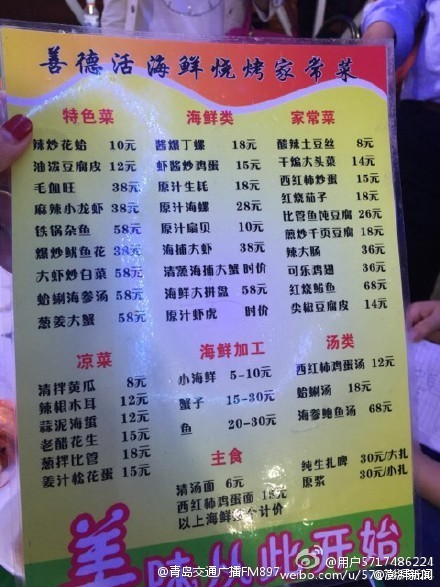 善德活海鲜烧烤家常菜
特色菜
辣炒花蛤 10元
油泼豆腐皮 12元
毛血旺 38元
麻辣小龙虾 38元
铁锅杂鱼 58元
爆炒鱿鱼花 38元
大虾炒白菜 58元
蛤蜊海参汤 58元
葱姜大蟹 58元
海鲜类
酱爆丁螺 18元
虾酱炒鸡蛋 15元
原汁生蚝 18元
原汁海螺 28元
原汁扇贝 10元
海捕大虾 38元
清蒸海捕大蟹 时价
海鲜大拼盘 58元
原汁虾虎 时价
家常菜
酸辣土豆丝 8元
干煸大头菜 14元
西红柿炒蛋 15元
红烧茄子 18元
比管鱼炖豆腐 26元
煎炒千页豆腐 18元
辣大肠 36元
可乐鸡翅 36元
红烧鲐鱼 68元
尖椒豆腐皮 14元
凉菜
清拌黄瓜 8元
辣根木耳 12元
蒜泥海蜇 12元
老醋花生 15元
葱拌比管 18元
姜汁松花蛋 15元
海鲜加工
小海鲜 5-10元
蟹子 15-30元
鱼 20-30元
汤类
西红柿鸡蛋汤 12元
蛤蜊汤 18元
海参鲍鱼汤 68元
主食
清汤面 6元
西红柿鸡蛋面
以上海鲜 个计价
纯生扎啤 30元/大扎
原浆 30元/小扎
美味从此开始
@青岛交通广播FM897
@用户5717486224
weibo.com/u/570
@澎湃新闻